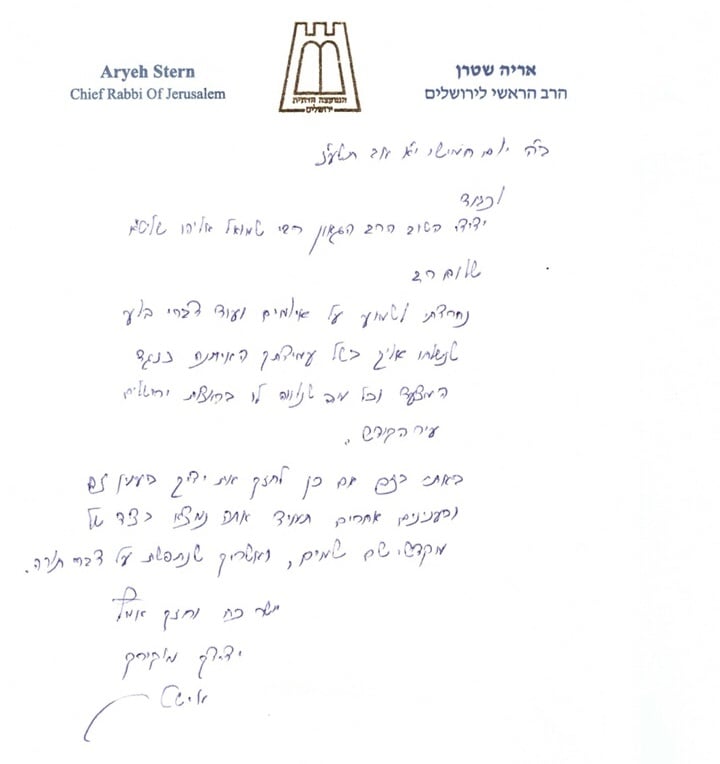 Aryeh Stern
Chief Rabbi Of Jerusalem
המועצה הדתית
ירושלים
אריה שטרן
הרב הראשי לירושלים
ב"ה יום חמישי י"א אב תשע"ז
לכבוד
ידידי הטוב הרב הגאון רבי שמואל אליהו שליט"א
שלום רב
נחרדתי לשמוע על איומים ועוד דברי בלע
שנשלחו אליך בשל עמידתך האיתנה כנגד
המצעד וכל מה שנלווה לו בחוצות ירושלים
עיר הקודש.
באתי בזה אם כן לחזק את ידיך בענין זה
ובענינים אחרים תמיד אתה נמצא בצד של
מקדשי שם שמים, ואשריך שנתפשת על דברי תורה.
יישר כח וחזק ואמץ
ידידך מוקירך